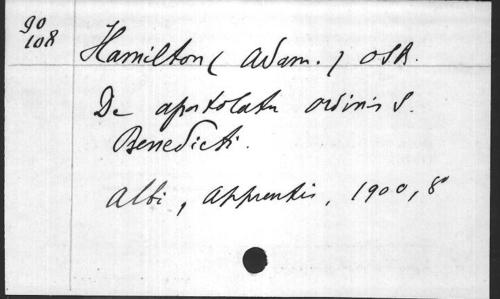 90
108
Hamilton (Adam.) OSB.
De apostolatu ordinis S.
Benedicti.
Albi, Apprentis, 1900, 8°